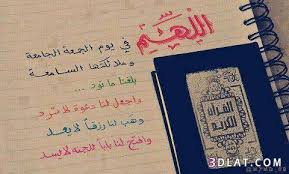 اللهم
في يوم الجمعة الجامعة
وملائكتها السامعة
بلغنا ما نود ...
واجعل لنا دعوة لا ترد
وهب لنا رزقاً لا يعد
وافتح لنا باباً للجنة لا يسد
القرآن
الكريم
3DLAT.COM